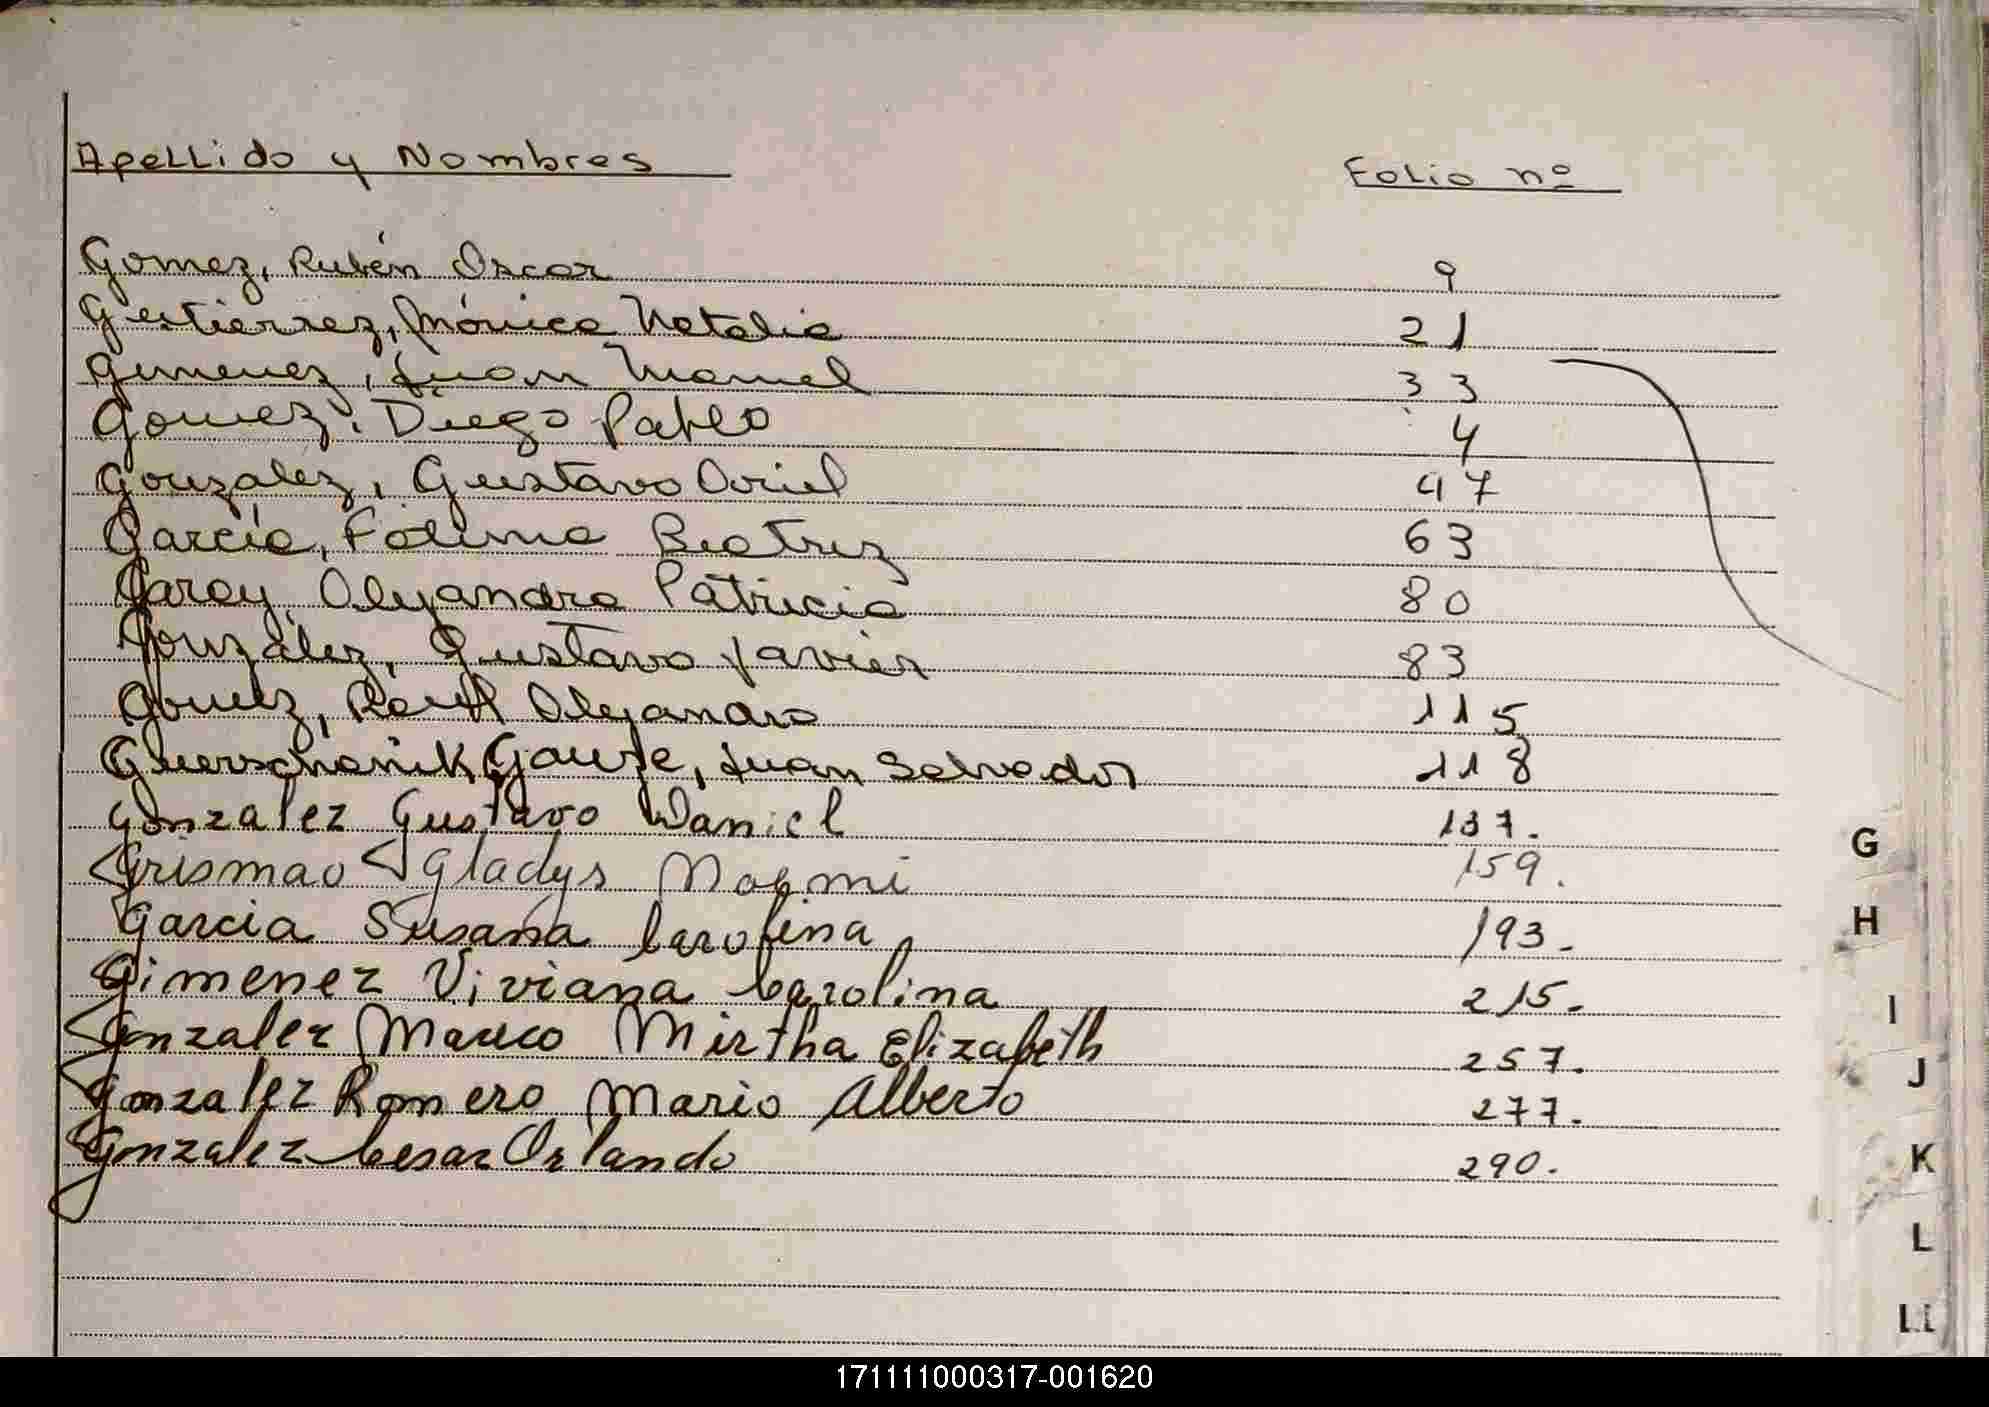 Apellido y Nombres Folio nº
Gomez, Rubén Oscar 9
Gutierrez, Mónica Natalia 21
Gimenez, Juan Manuel 33
Gomez, Diego Pablo 4
González, Gustavo Oriel 47
García, Fátima Beatriz 63
Garay, Alejandra Patricia 80
González, Gustavo Javier 83
Gomez, Raúl Alejandro 115
Guerschanik Gauze, Juan Salvador 118
Gonzalez Gustavo Daniel 137.
Grismao Gladys Noemi 159.
Garcia Susana Carolina 193.
G
H
Gimenez Viviana Carolina 215.
I
Gonzalez Marco Mirtha Elizabeth 257.
J
Gonzalez Romero Mario Alberto 277.
Gonzalez Cesar Orlando 290.
K
L
LL
171111000317-001620